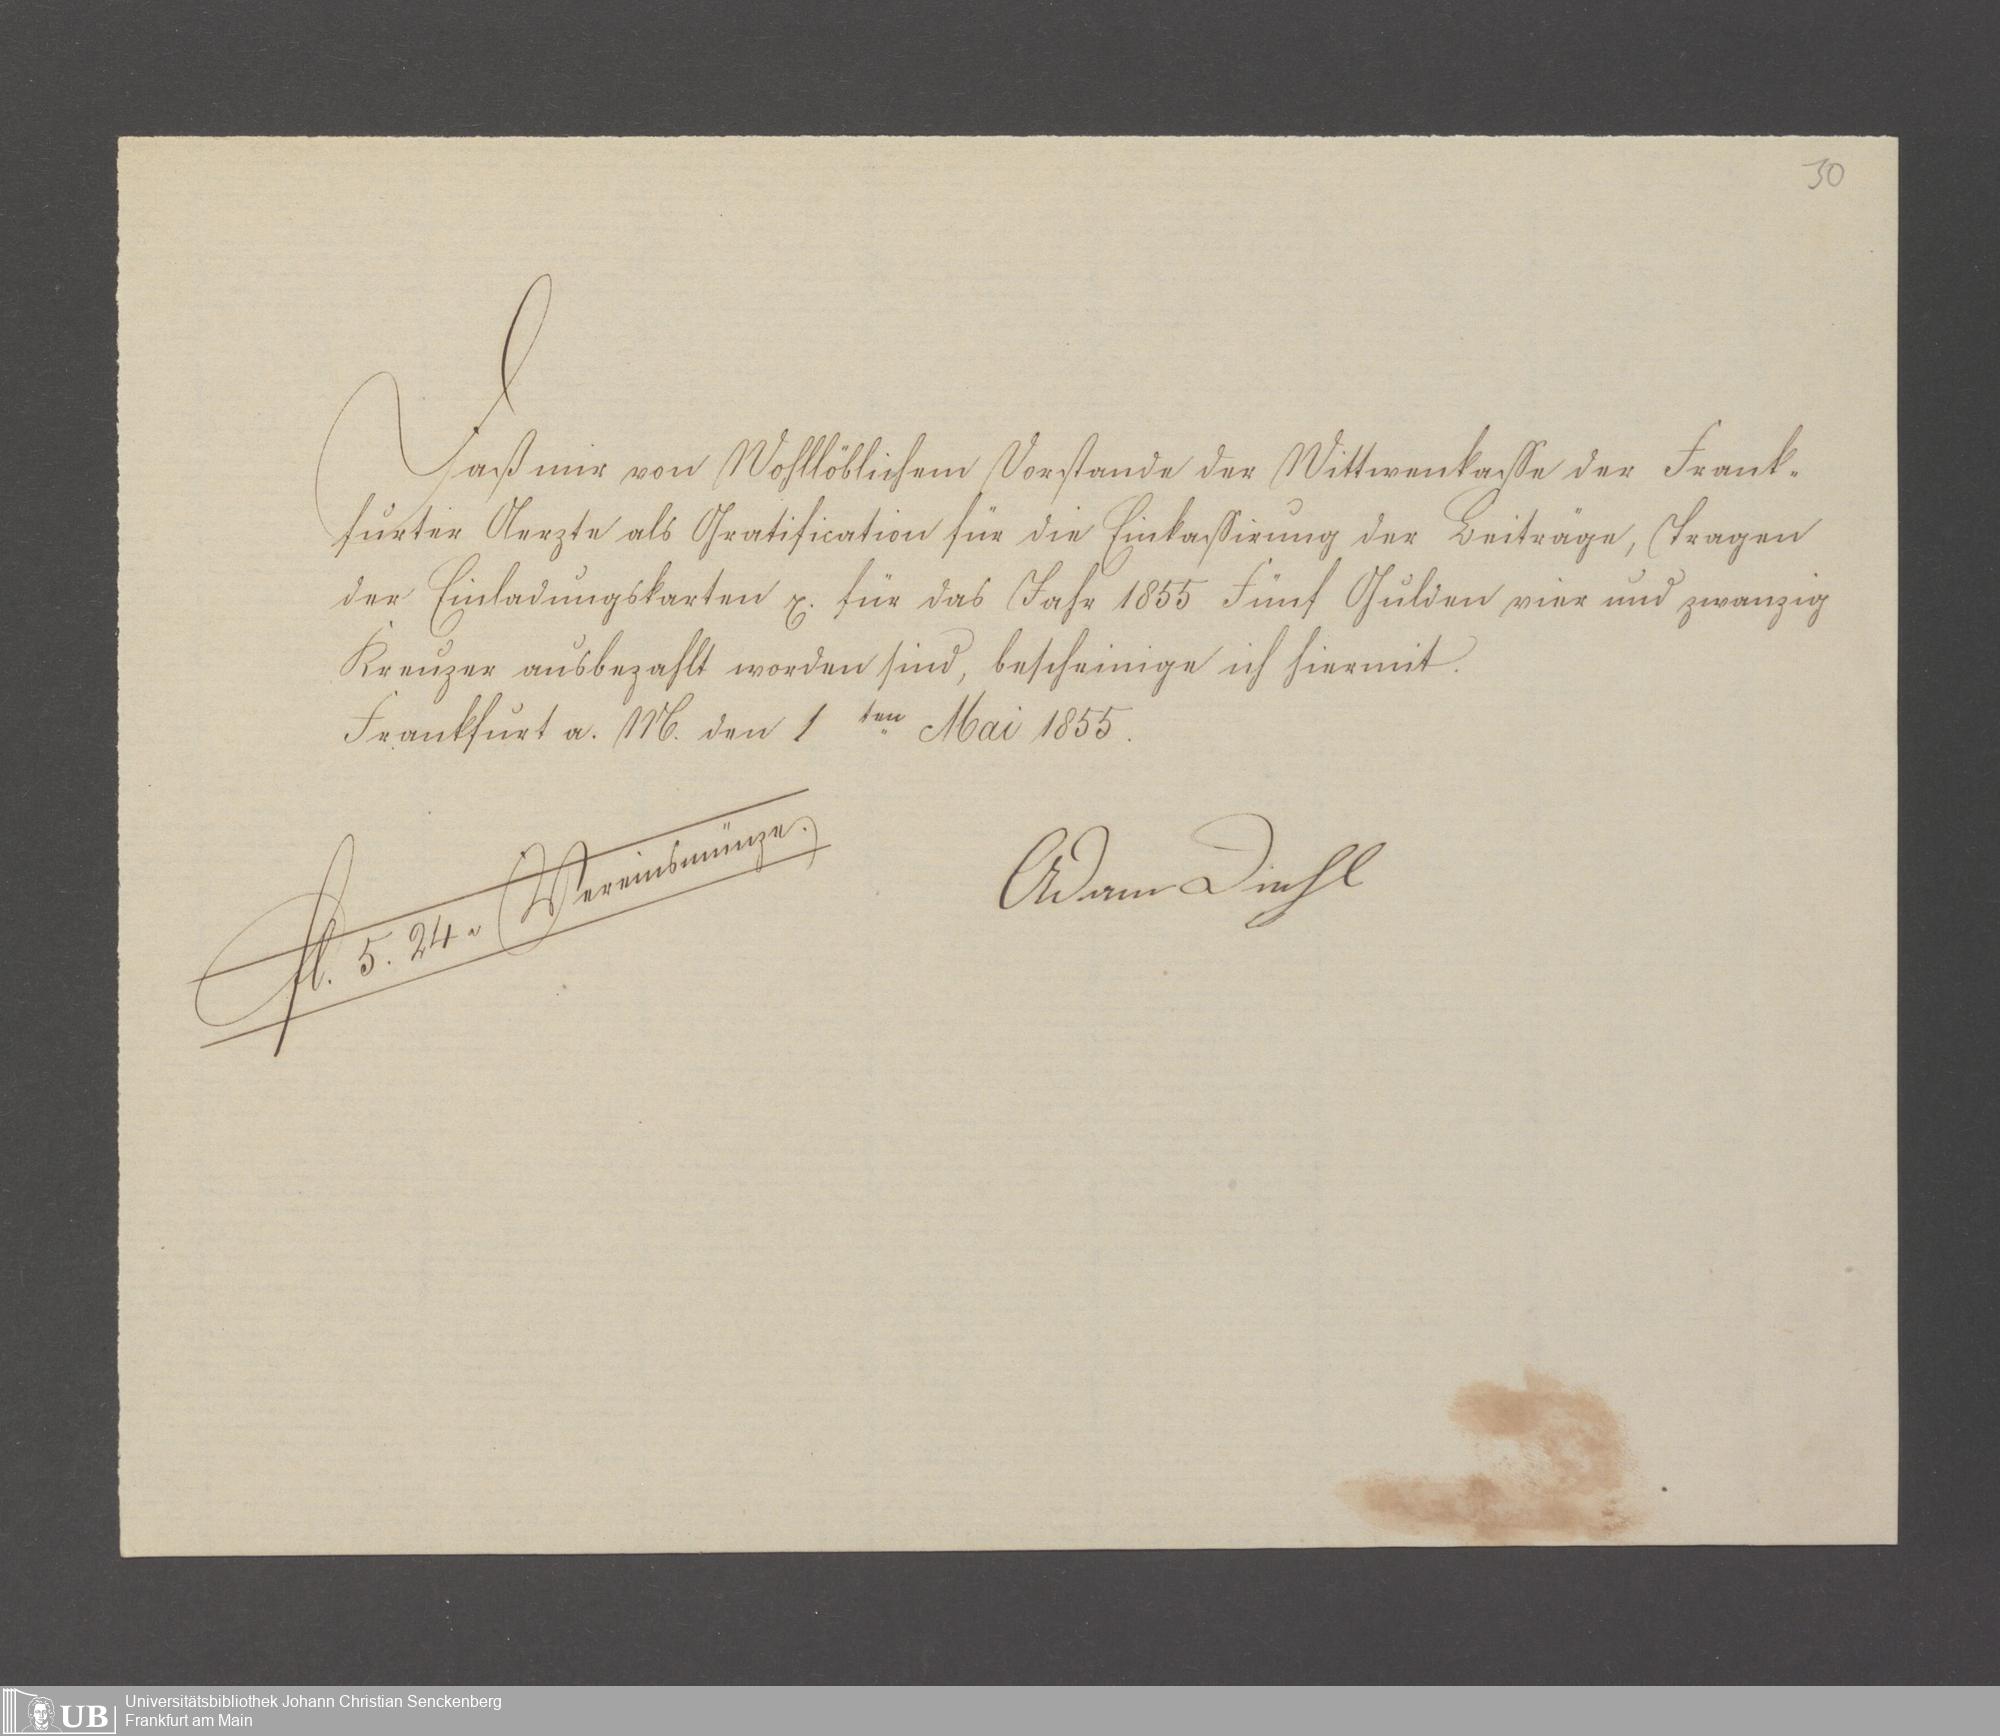 30
Daß mir von Wohllöblichem Vorstande der Wittwenkasse der Frank-
furter Aerzte als Gratification für die Einkassirung der Beiträge, Tragen
der Einladungskarten x. für das Jahr 1855 Fünf Gulden vier und zwanzig
Kreuzer ausbezahlt worden sind, bescheinige ich hiermit.
Frankfurt a. M. den 1ten Mai 1855.
fl. 5. 24 " Vereinsmünze.
Adam Diehl
UB
Universitätsbibliothek Johann Christian Senckenberg
Frankfurt am Main